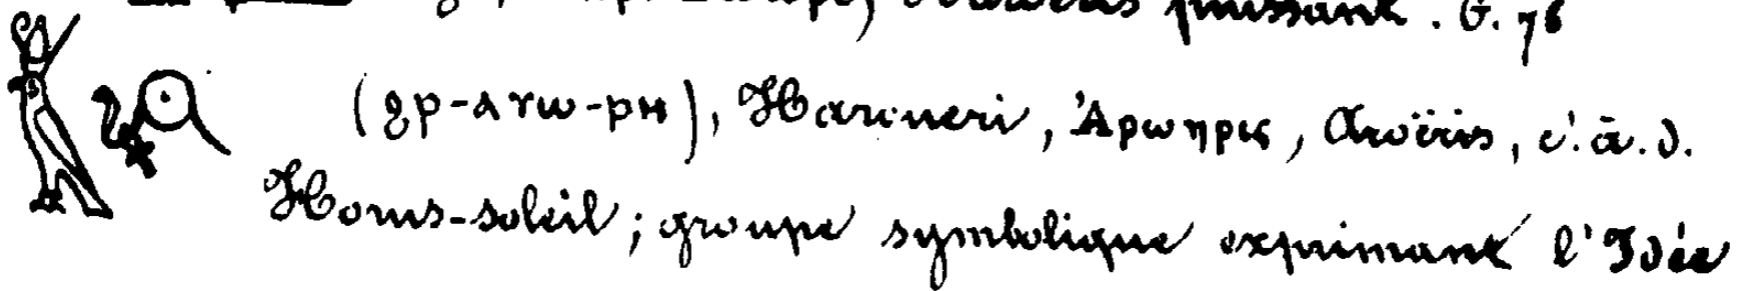 puissant. G. 76
(ϩρ-ⲁⲣⲱ-ⲣⲏ), Haroueri, Ἀρωηρις, Aroëris, c'.à.d.
Horus-soleil; groupe symbolique exprimant l'Idée